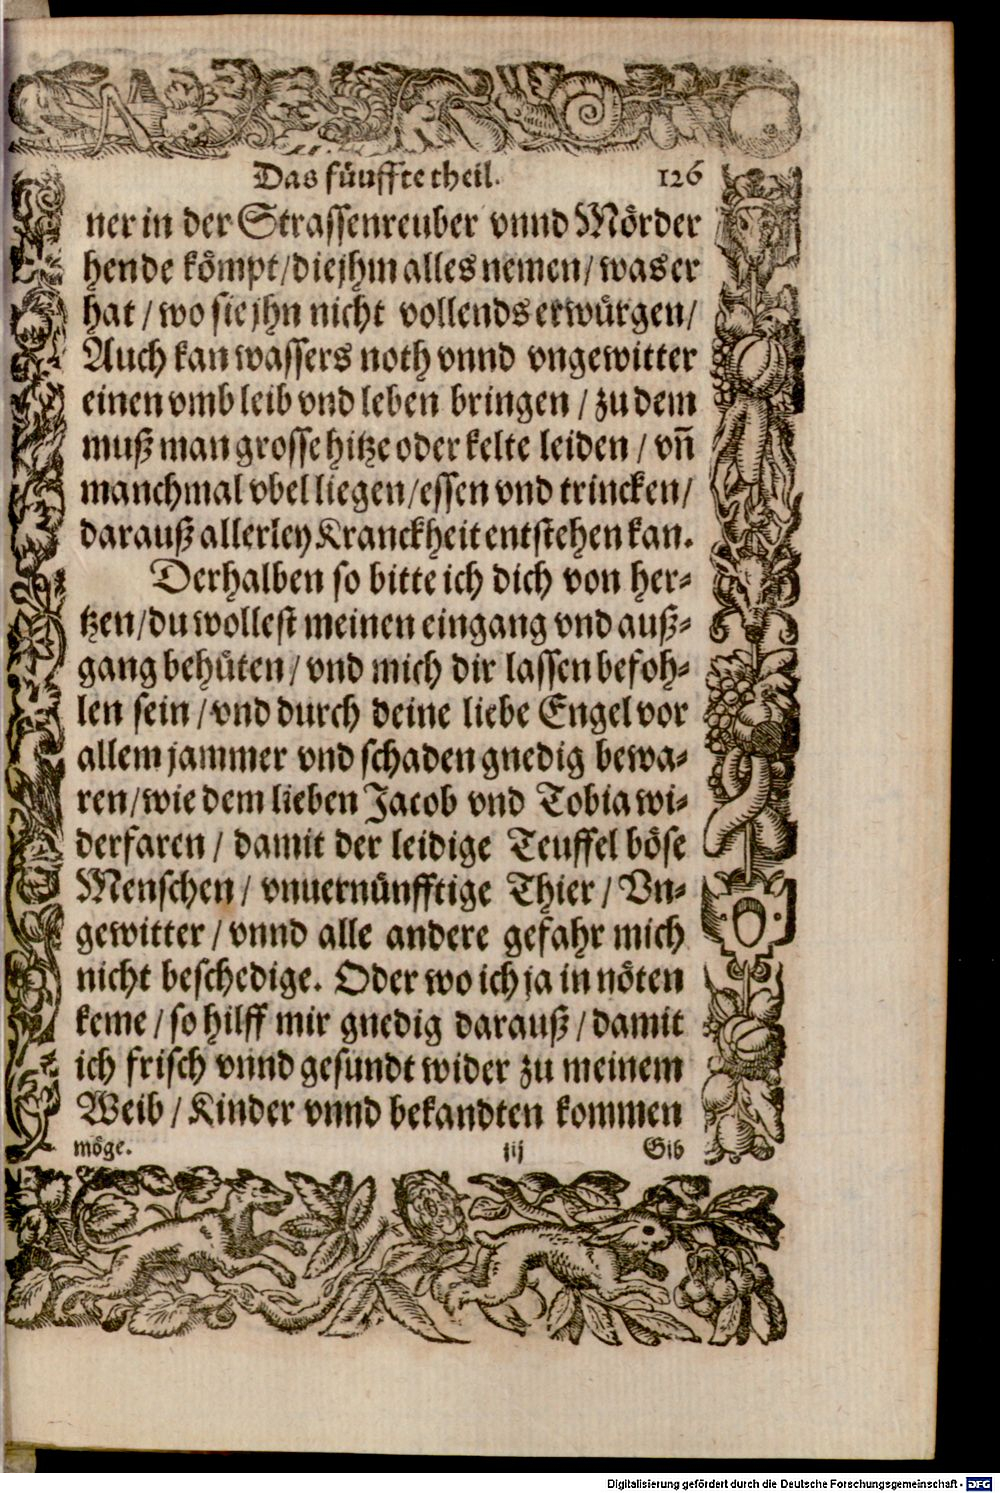 Das fünffte theil. 126
ner in der Strassenreuber vnnd Mörder
hende kömpt/die jhm alles nemen/was er
hat/wo sie jhn nicht vollends erwürgen/
Auch kan wassers noth vnnd vngewitter
einen vmb leib vnd leben bringen/zu dem
muß man grosse hitze oder kelte leiden/vn̄
manchmal vbel liegen/essen vnd trincken/
darauß allerley Kranckheit entstehen kan.
Derhalben so bitte ich dich von her⸗
tzen/du wollest meinen eingang vnd auß⸗
gang behüten/vnd mich dir lassen befoh⸗
len sein/vnd durch deine liebe Engel vor
allem jammer vnd schaden gnedig bewa⸗
ren/wie dem lieben Jacob vnd Tobia wi⸗
derfaren/damit der leidige Teuffel böse
Menschen/vnuernünfftige Thier/Vn⸗
gewitter/vnnd alle andere gefahr mich
nicht beschedige. Oder wo ich ja in nöten
keme/so hilff mir gnedig darauß/damit
ich frisch vnnd gesundt wider zu meinem
Weib/Kinder vnnd bekandten kommen
möge. iij Gib
Digitalisierung gefördert durch die Deutsche Forschungsgemeinschaft - DFG